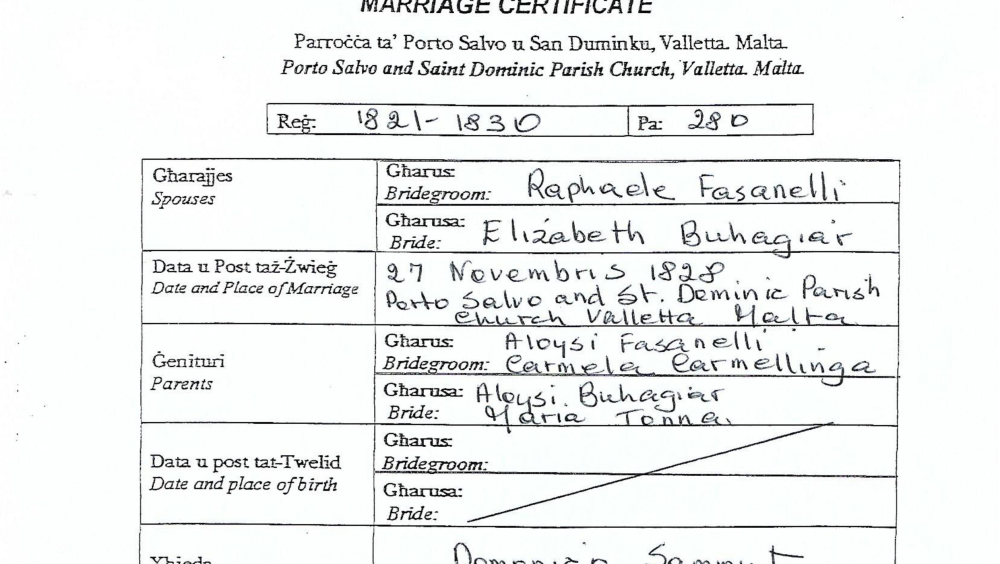 MARRIAGE CERTIFICATE
Parroċċa ta' Porto Salvo u San Duminku, Valletta. Malta.
Porto Salvo and Saint Dominic Parish Church, Valletta. Malta.
Reġ: 1821-1830 Pa: 280
Għarajjes
Spouses
Għarus:
Bridegroom: Raphaele Fasanelli
Għarusa:
Bride: Elizabeth Buhagiar
Data u Post taż-Żwieġ
Date and Place of Marriage
27 Novembris 1828
Porto Salvo and St. Dominic Parish
Church Valletta Malta
Ġenituri
Parents
Għarus: Aloysi Fasanelli
Bridegroom: Carmela Carmellinga
Għarusa: Aloysi Buhagiar
Bride: Maria Tonna
Data u post tat-Twelid
Date and place of birth
Għarus:
Bridegroom:
Għarusa:
Bride:
Xhieda
Sammut